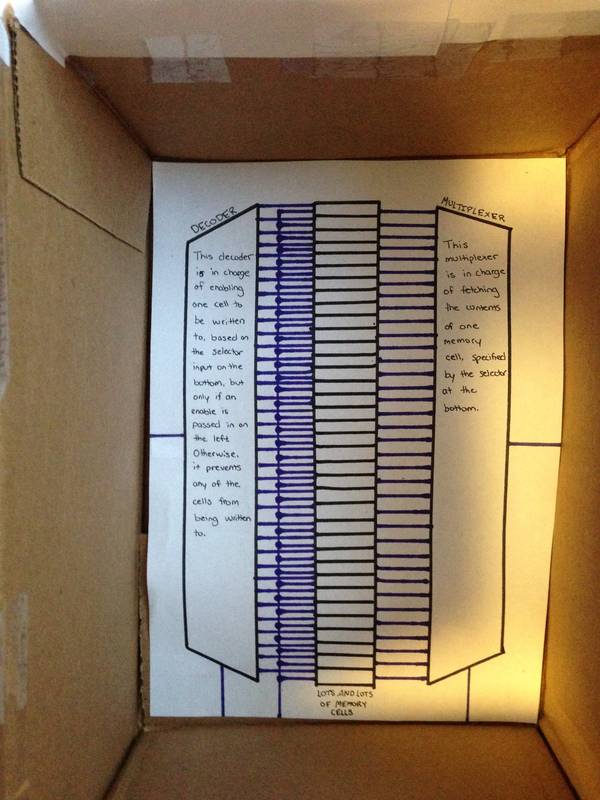 DECODER
This decoder
is in charge
of enabling
one cell to
be written
to, based on
the selector
input on the
bottom, but
only if an
enable is
passed in on
the left.
Otherwise,
it prevents
any of the
cells from
being written
to.
MULTIPLEXER
This
multiplexer
is in charge
of fetching
the contents
of one
memory
cell, specified
by the selector
at the
bottom.
LOTS AND LOTS
OF MEMORY
CELLS